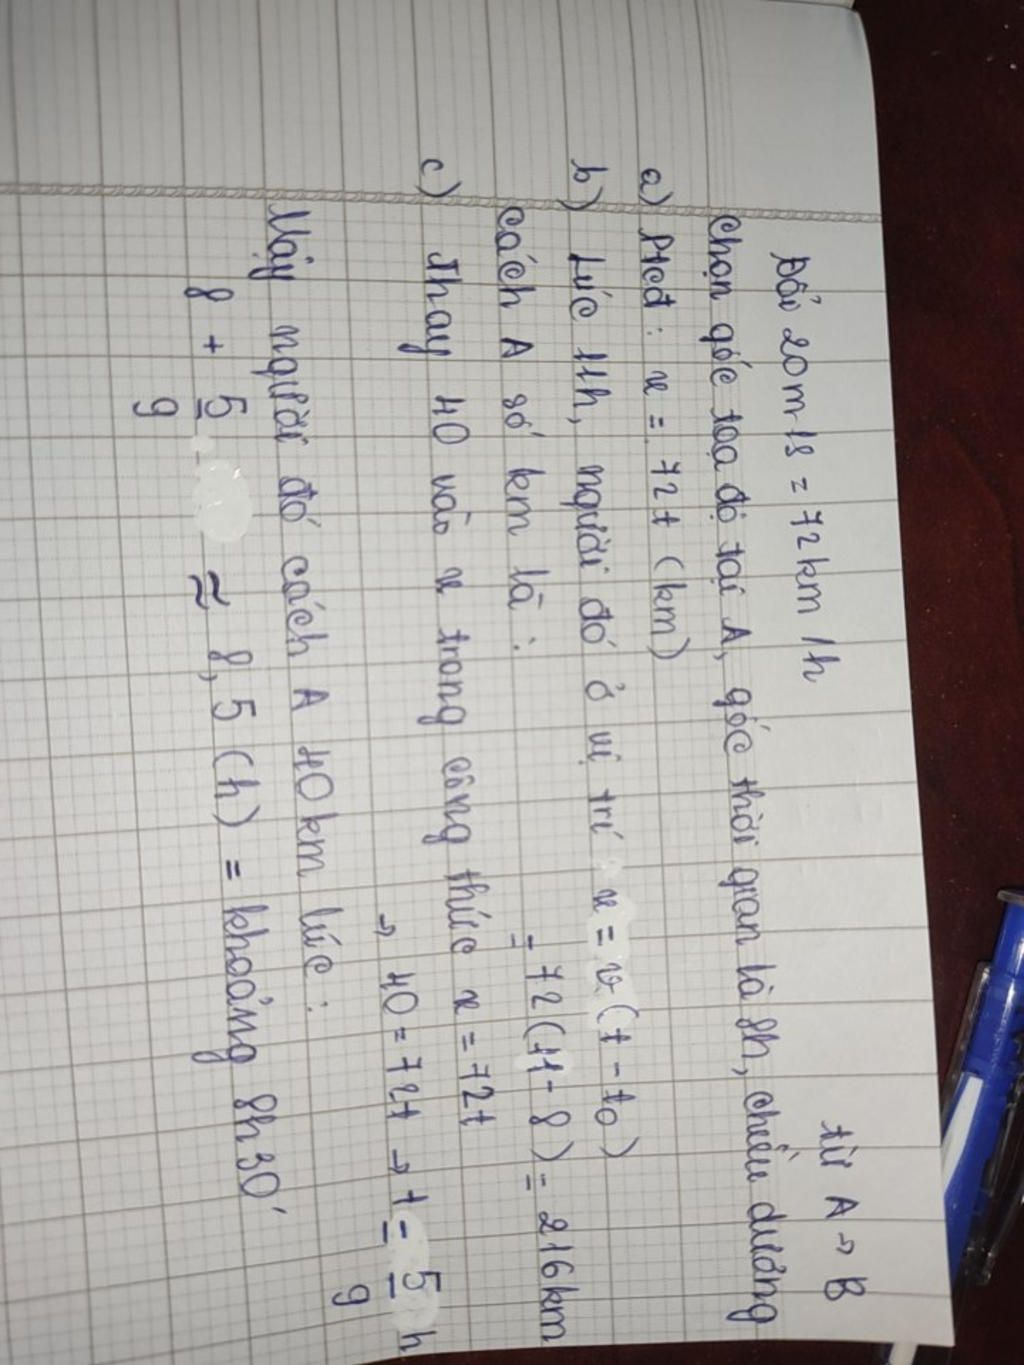 Đổi 20m/s = 72km/h
từ A → B
Chọn gốc tọa độ tại A, gốc thời gian là 8h, chiều dương
a) Ptcđ: x = 72t (km)
b) Lúc 11h, người đó ở vị trí x = v(t - t0)
cách A số km là: = 72(11 - 8) = 216km
c) Thay 40 vào x trong công thức x = 72t
→ 40 = 72t → t = 5/9 h
Vậy người đó cách A 40km lúc:
8 + 5/9 ≈ 8,5 (h) = khoảng 8h30'